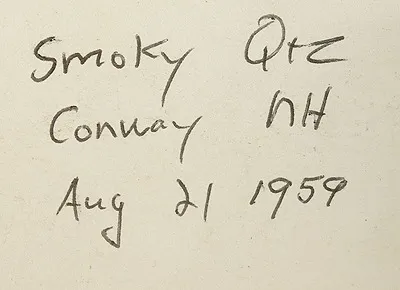 Smoky Qtz
Conway NH
Aug 21 1959